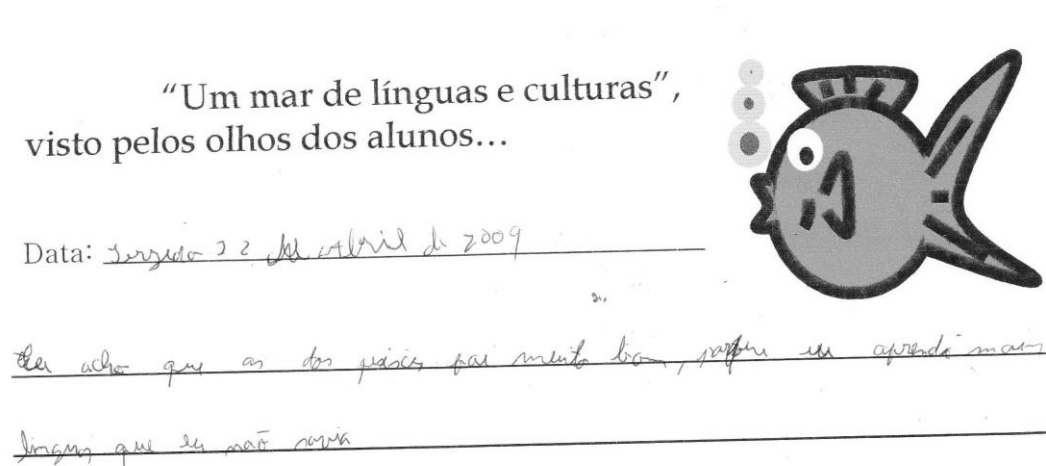 “Um mar de línguas e culturas”,
visto pelos olhos dos alunos...
Data: 22 de Abril de 2009
Eu acho que as dos peixes foi muito bom, porque eu aprendi mais
linguas que eu não savia